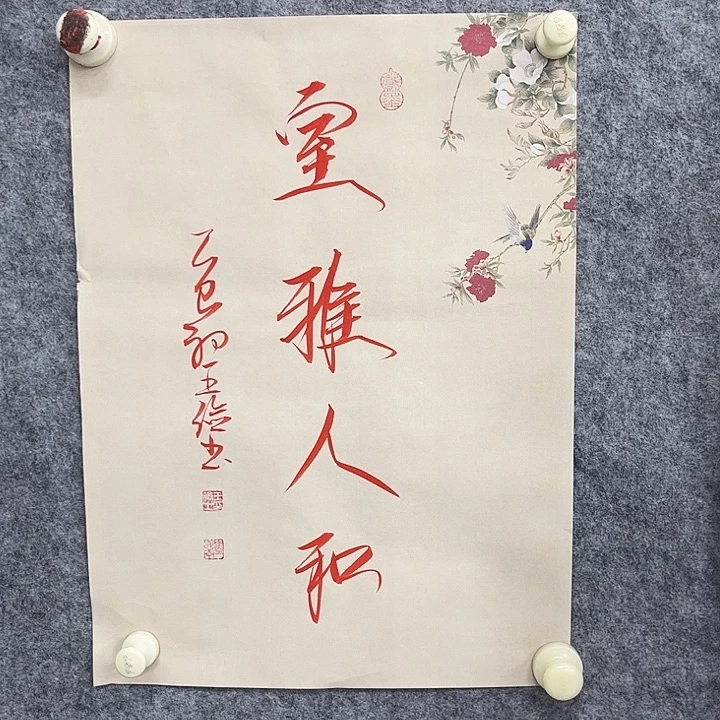 室雅人和
乙巳初王俭书